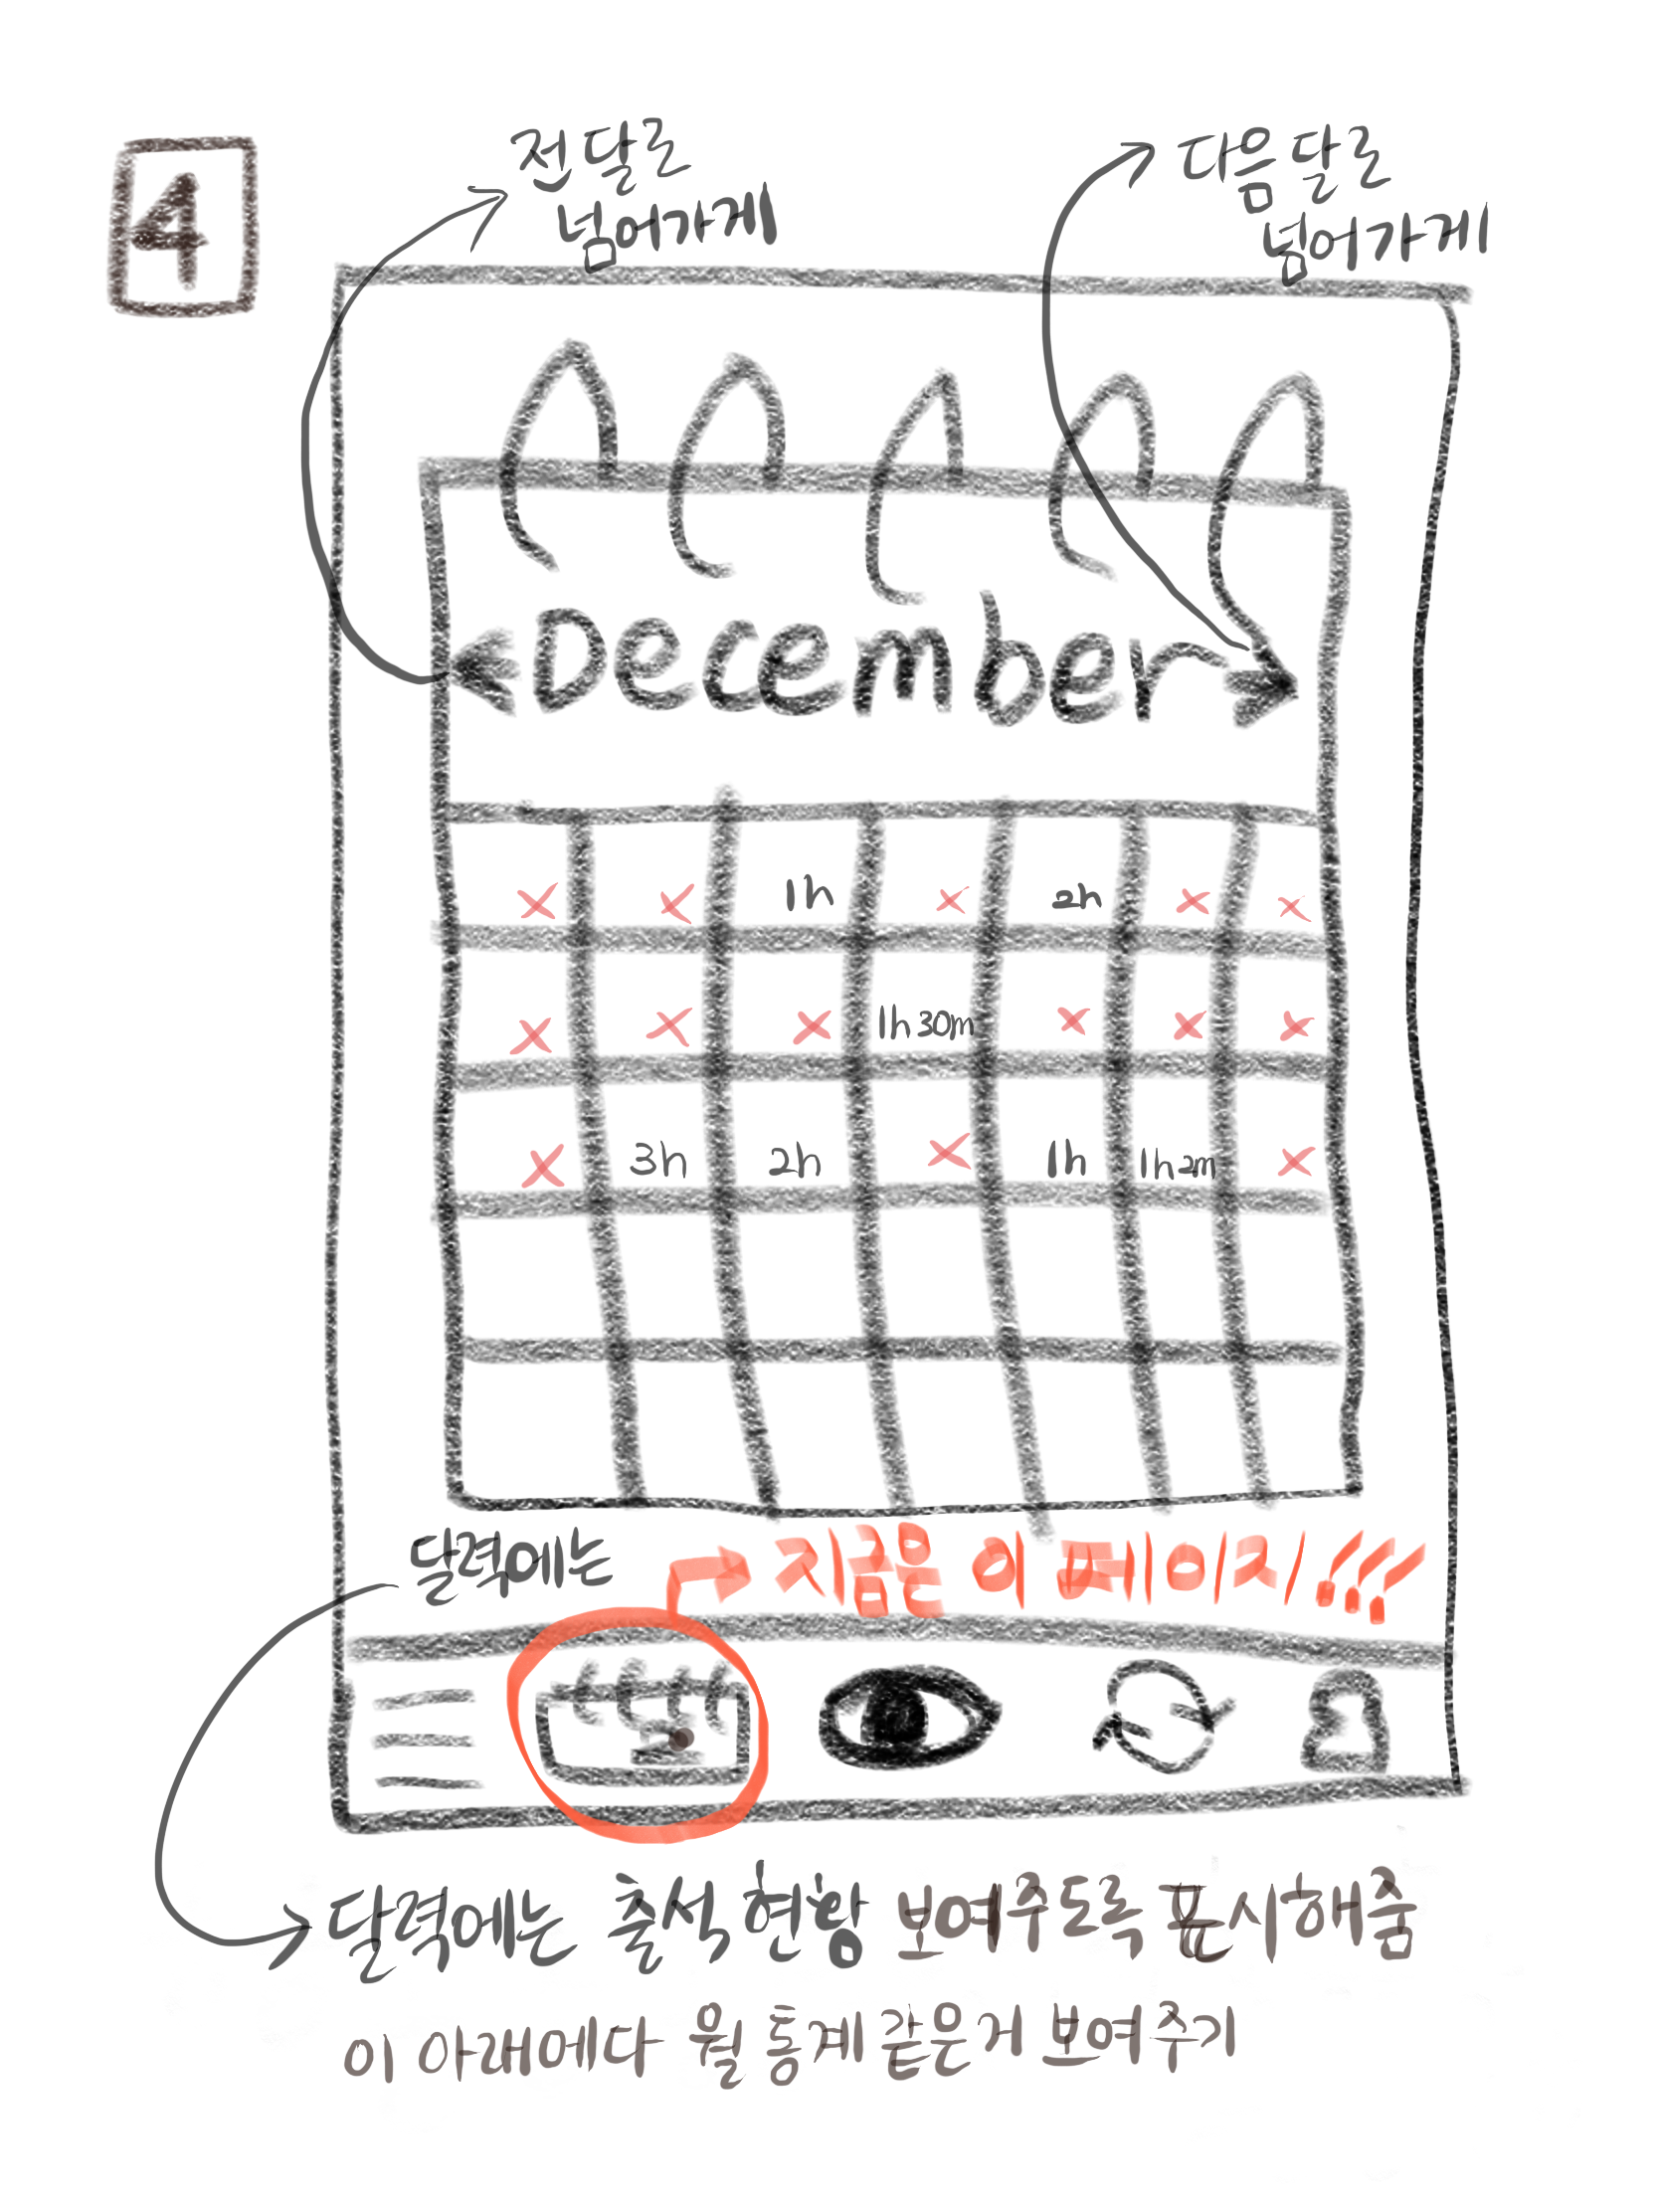 4
전달로
넘어가게
다음달로
넘어가게
December
X X 1h X 2h X X
X X X 1h30m X X X
X 3h 2h X 1h 1h2m X
달력에는
지금은 이 페이지!!!
달력에는 출석 현황 보여주도록 표시해줌
이 아래에다 월 통계 같은거 보여주기